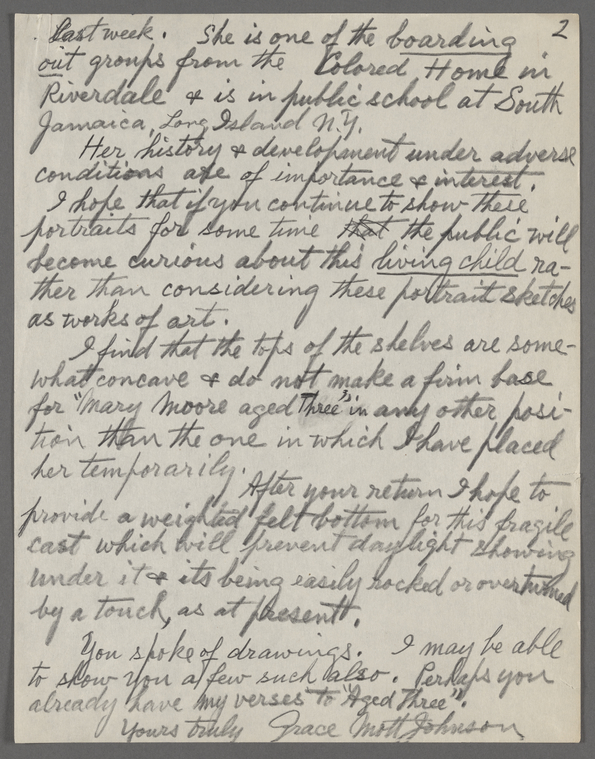 2
Last week. She is one of the boarding
out groups from the Colored Home in
Riverdale & is in public school at South
Jamaica, Long Island N.Y.
Her history & development under adverse
conditions are of importance & interest.
I hope that if you continue to show these
portraits for some time that the public will
become curious about this living child ra-
ther than considering these portrait sketches
as works of art.
I find that the tops of the shelves are some-
what concave & do not make a firm base
for "Mary Moore aged Three" in any other posi-
tion than the one in which I have placed
her temporarily.
After your return I hope to
provide a weighted felt bottom for this fragile
cast which will prevent daylight showing
under it & its being easily rocked or overturned
by a touch, as at present.
You spoke of drawings. I may be able
to show you a few such also. Perhaps you
already have my verses to "Aged Three".
Yours truly Grace Mott Johnson